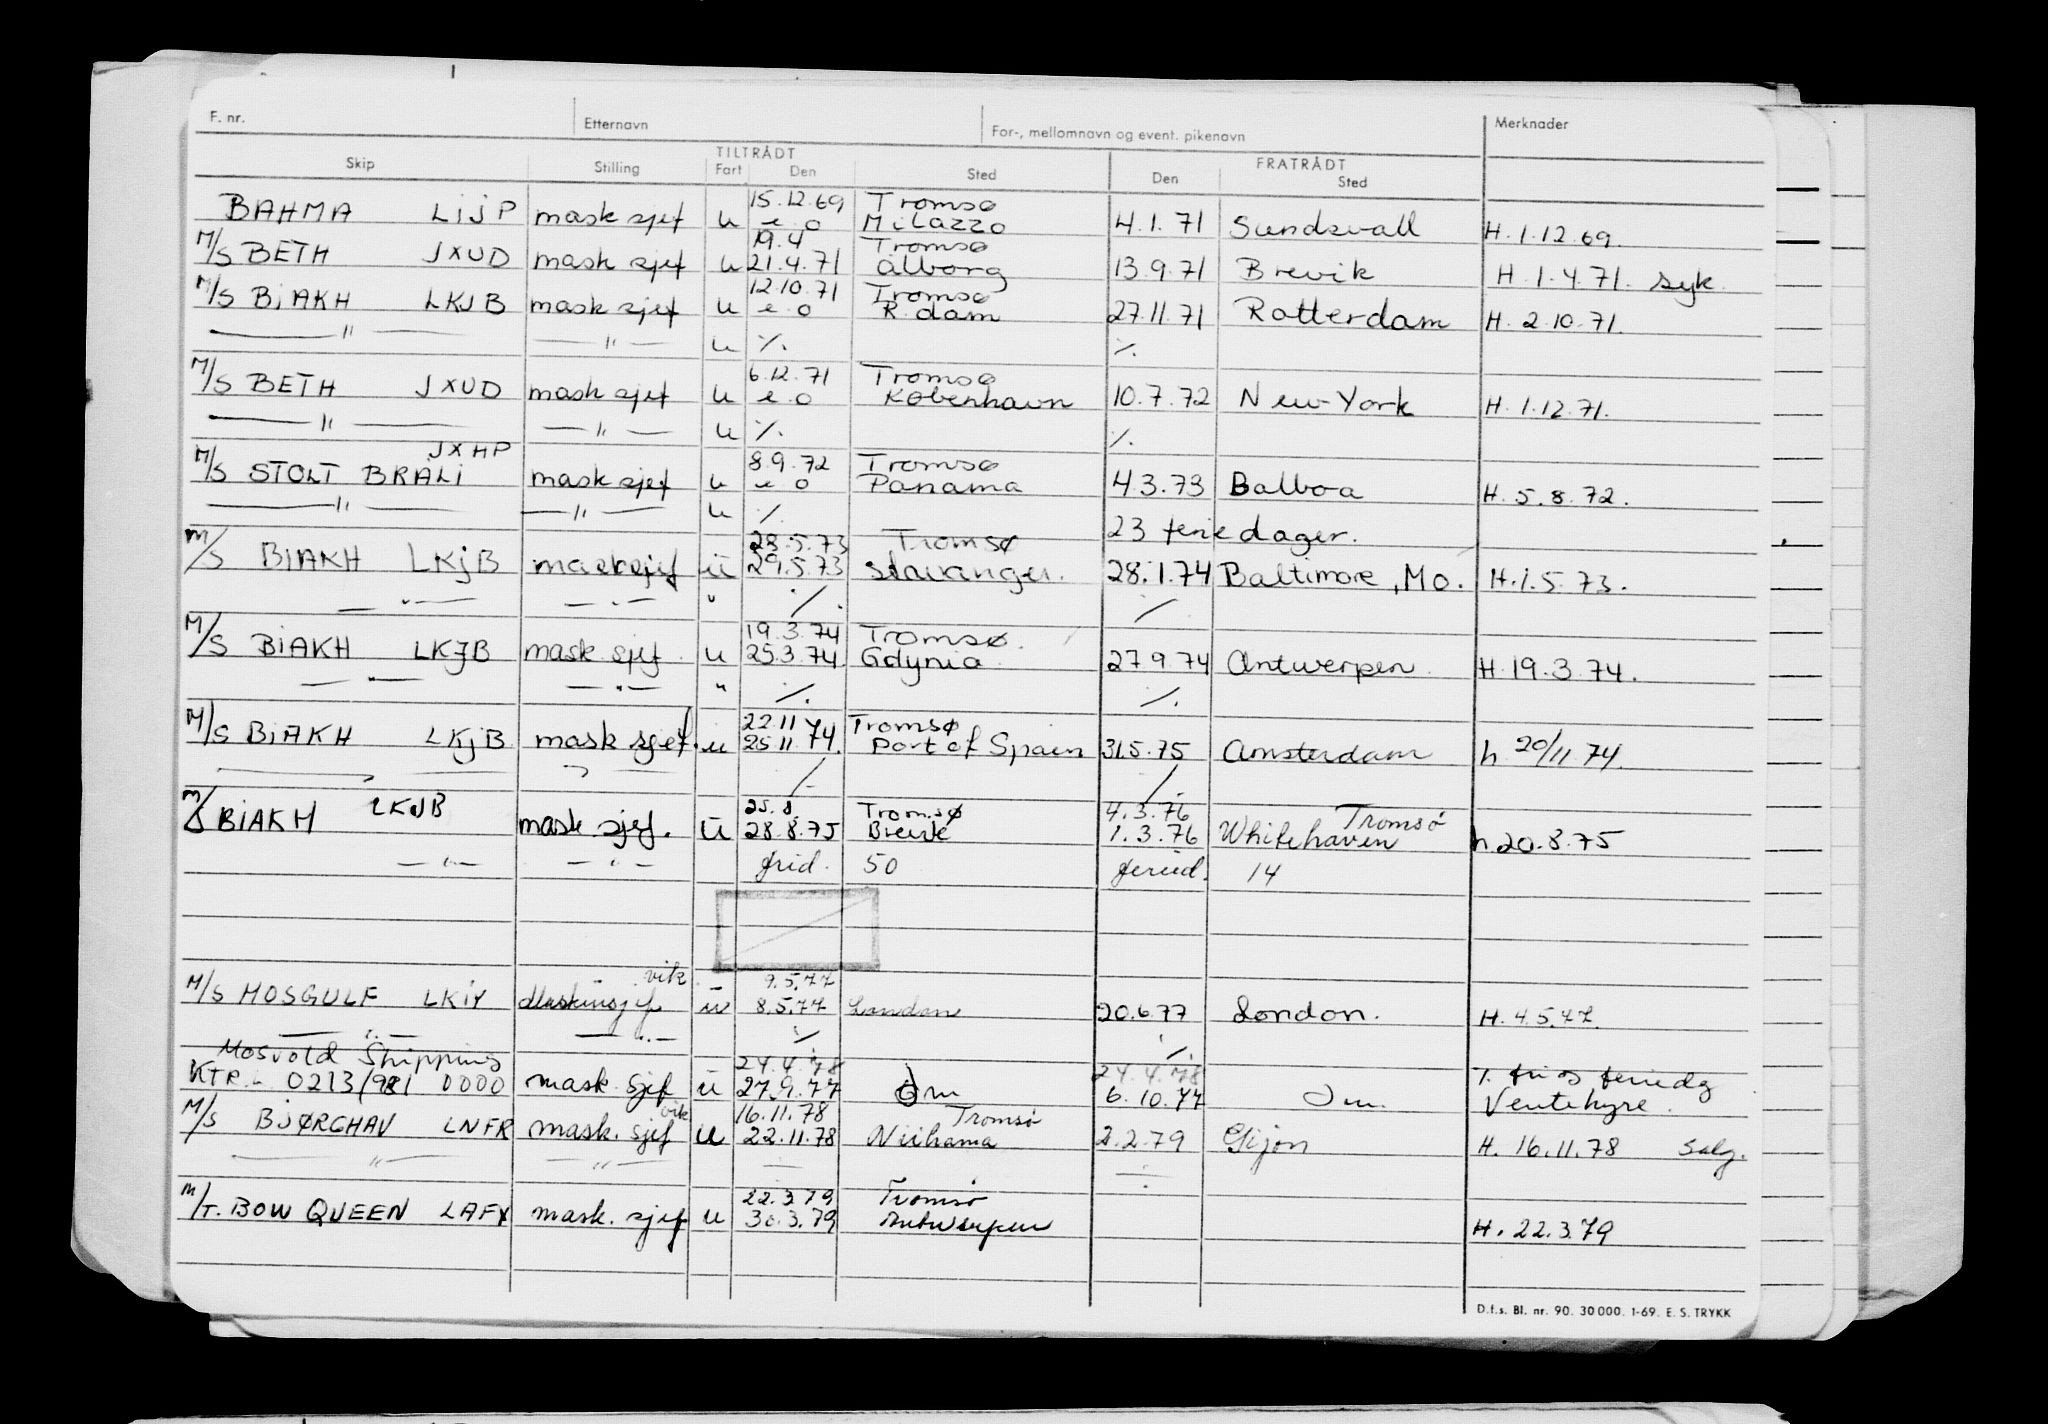 F. nr. Etternavn For-, mellomnavn og event. pikenavn Merknader
TILTRÅDT FRATRÅDT
Skip Stilling Fart Den Sted Den Sted
15.12.69 Tromsø
BAHMA LIJP mask sjef u e.o Milazzo 4.1.71 Sundsvall H. 1.12.69.
19.4 Tromsø
M/S BETH JXUD mask sjef u 21.4.71 Ålborg 13.9.71 Brevik H. 1.4.71. syk.
12.10.71 Tromsø
M/S BIAKH LKJB mask sjef u e.o R.dam 27.11.71 Rotterdam H. 2.10.71.
—"— —"— u ./. ./.
6.12.71 Tromsø
M/S BETH JXUD mask sjef u e.o København 10.7.72 New-York H. 1.12.71.
—"— —"— u ./. ./.
JXHP 8.9.72 Tromsø
M/S STOLT BRALI mask sjef u e.o Panama 4.3.73 Balboa H. 5.8.72.
—"— —"— u ./. 23 feriedager.
28.5.73 Tromsø
M/S BIAKH LKJB masksjef u 29.5.73 Stavanger. 28.1.74 Baltimore, MO. H.1.5.73.
—"— —"— " ./. ./.
19.3.74 Tromsø.
M/S BIAKH LKJB mask sjef u 25.3.74 Gdynia 27.9.74 Antwerpen. H.19.3.74.
—"— —"— " ./. ./.
22.11 74 Tromsø
M/S BIAKH LKJB mask sjef. u 25.11.74. Port of Spain 31.5.75 Amsterdam h. 20/11.74.
—"— —"— ./. ./.
25.8. Tromsø 4.3.76 Tromsø
M/S BIAKH LKJB mask. sjef. u 28.8.75 Brevik 1.3.76 Whitehaven h.20.8.75
—"— —"— frid. 50 feried. 14
vik 9.5.77
M/S MOSGULF LKIY Maskinsjef u 8.5.77 London 20.6.77 London. H. 4.5.77.
—"— —"— ./. ./.
Mosvold Shipping 24.4.78 24.4.78
KTR. 0213/981 0000 mask. sjef u 27.9.77 Om 6.10.77 Om. Ventehyre.
vik 16.11.78 Tromsø
M/S BJØRGHAV LNFR mask. sjef u 22.11.78 Niihama 2.2.79 Gijon H. 16.11.78 Salg.
—"— —"— ÷ ÷
22.3.79 Tromsø
M/T. BOW QUEEN LAFX mask. sjef u 30.3.79 Antwerpen H. 22.3.79
D.f.s. Bl. nr. 90. 30 000. 1-69. E. S. TRYKK